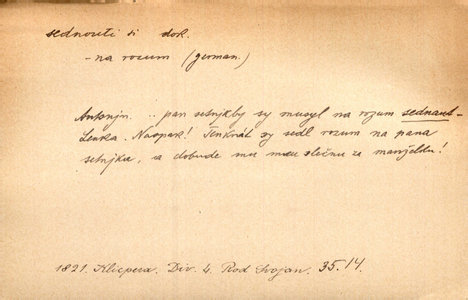 sednouti si dok.
- na rozum (german.)
Antonjn. .. pan setnjkby sy musyl na rozum sednaut -
Lenka. Naopak! Tenkrát sy sedl rozum na pana
setnjka, a dobude mu mau slečnu za manželku!
1821. Klicpera. Div. 4. Rod Svojan. 35. 14.